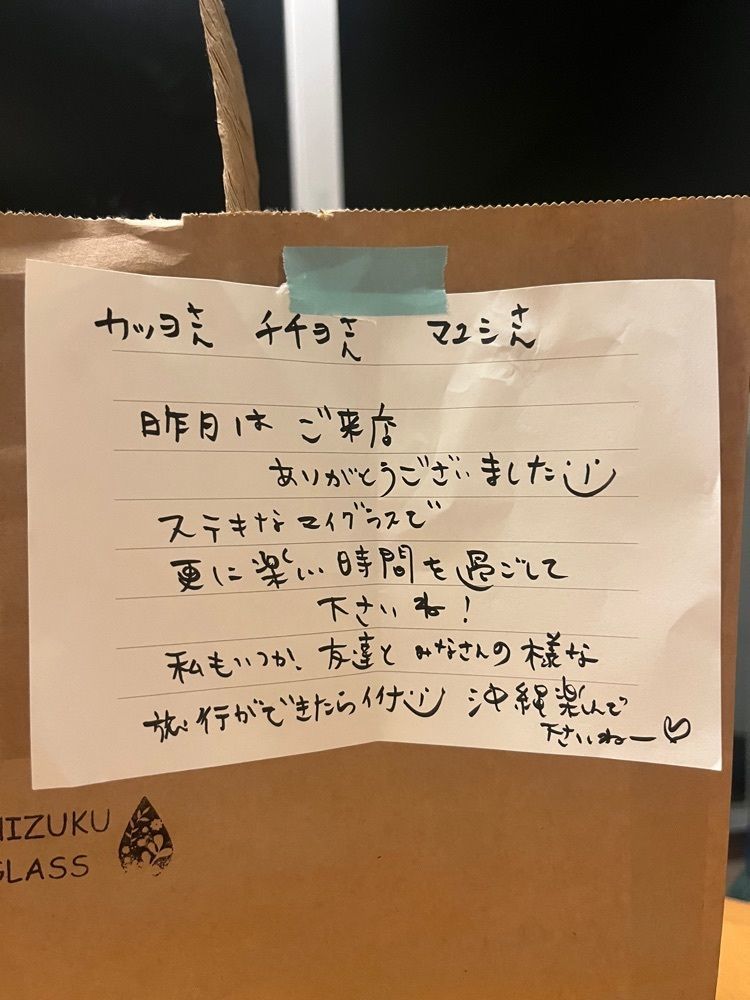 カツヨさん チチヨさん マユミさん
昨日は ご来店
ありがとうございました
ステキなマイグラスで
更に楽しい時間を過ごして
下さいね!
私もいつか、友達とみなさんの様な
旅行ができたらイイナ 沖縄楽しんで
下さいねー♡
HIZUKU
GLASS